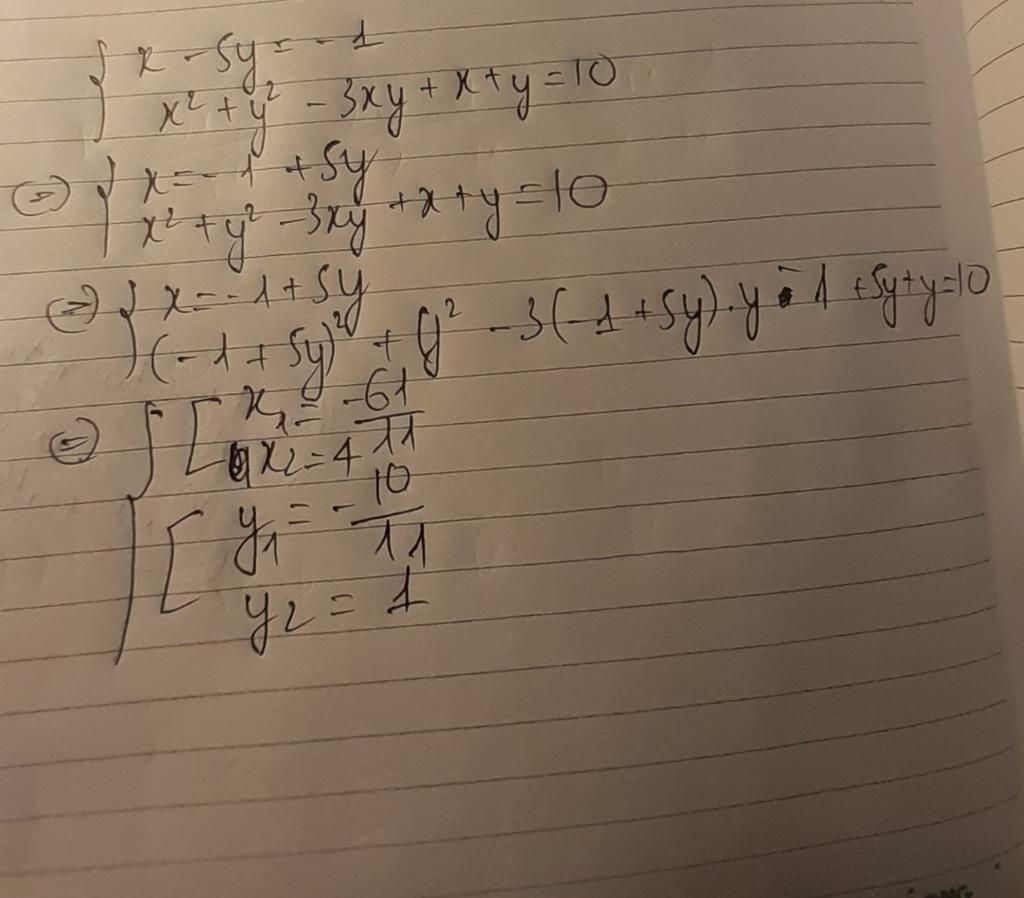 { x - 5y = -1
x² + y² - 3xy + x + y = 10
⇔ { x = -1 + 5y
x² + y² - 3xy + x + y = 10
⇔ { x = -1 + 5y
(-1 + 5y)² + y² - 3(-1 + 5y).y - 1 + 5y + y = 10
⇔ { [ x₁ = -61/11
x₂ = 4
[ y₁ = -10/11
y₂ = 1